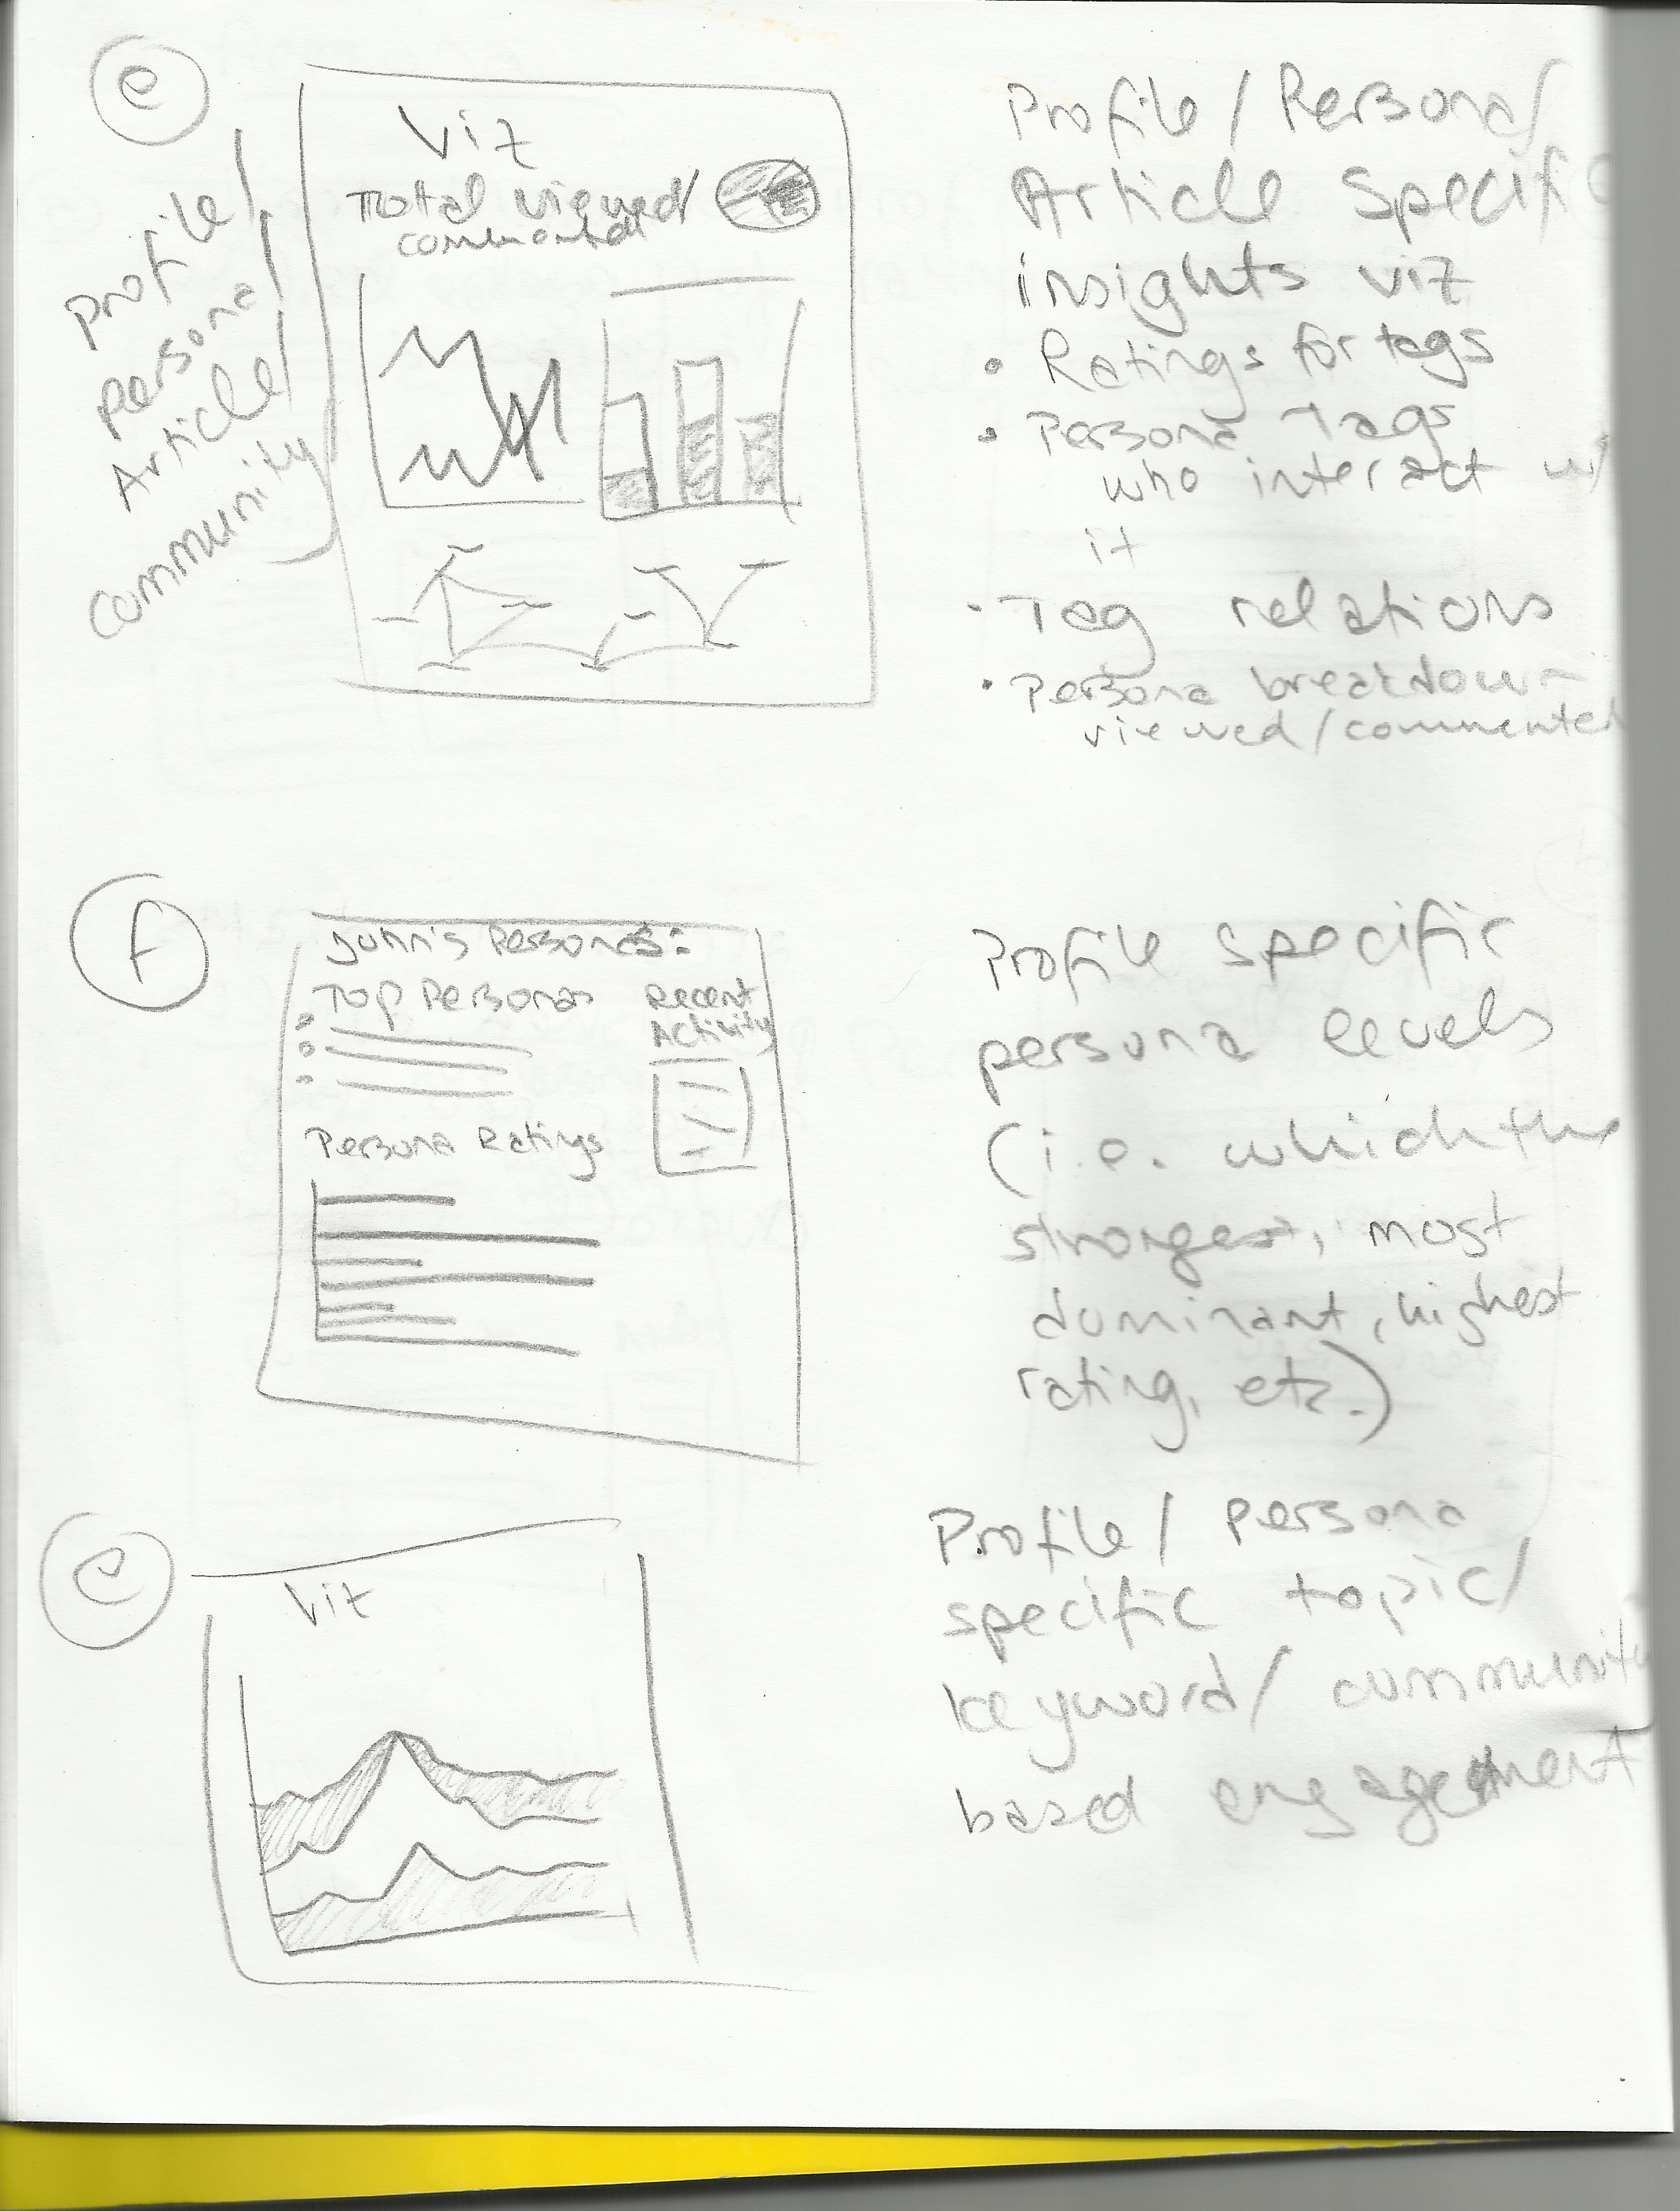 e
profile/
persona/
Article/
community
Viz
Total viewed/
commented
Profile/Persona/
Article Specific
insights viz
• Ratings for tags
• Persona Tags
who interact w/
it
• Tag relations
• Persona breakdown -
viewed/commented
f
John's Personas:
Top Personas
Recent
Activity
Persona Ratings
Profile specific
persona levels
(i.e. which the
strongest, most
dominant, highest
rating, etc.)
e
Viz
Profile/persona
specific topic/
keyword/community
based engagement